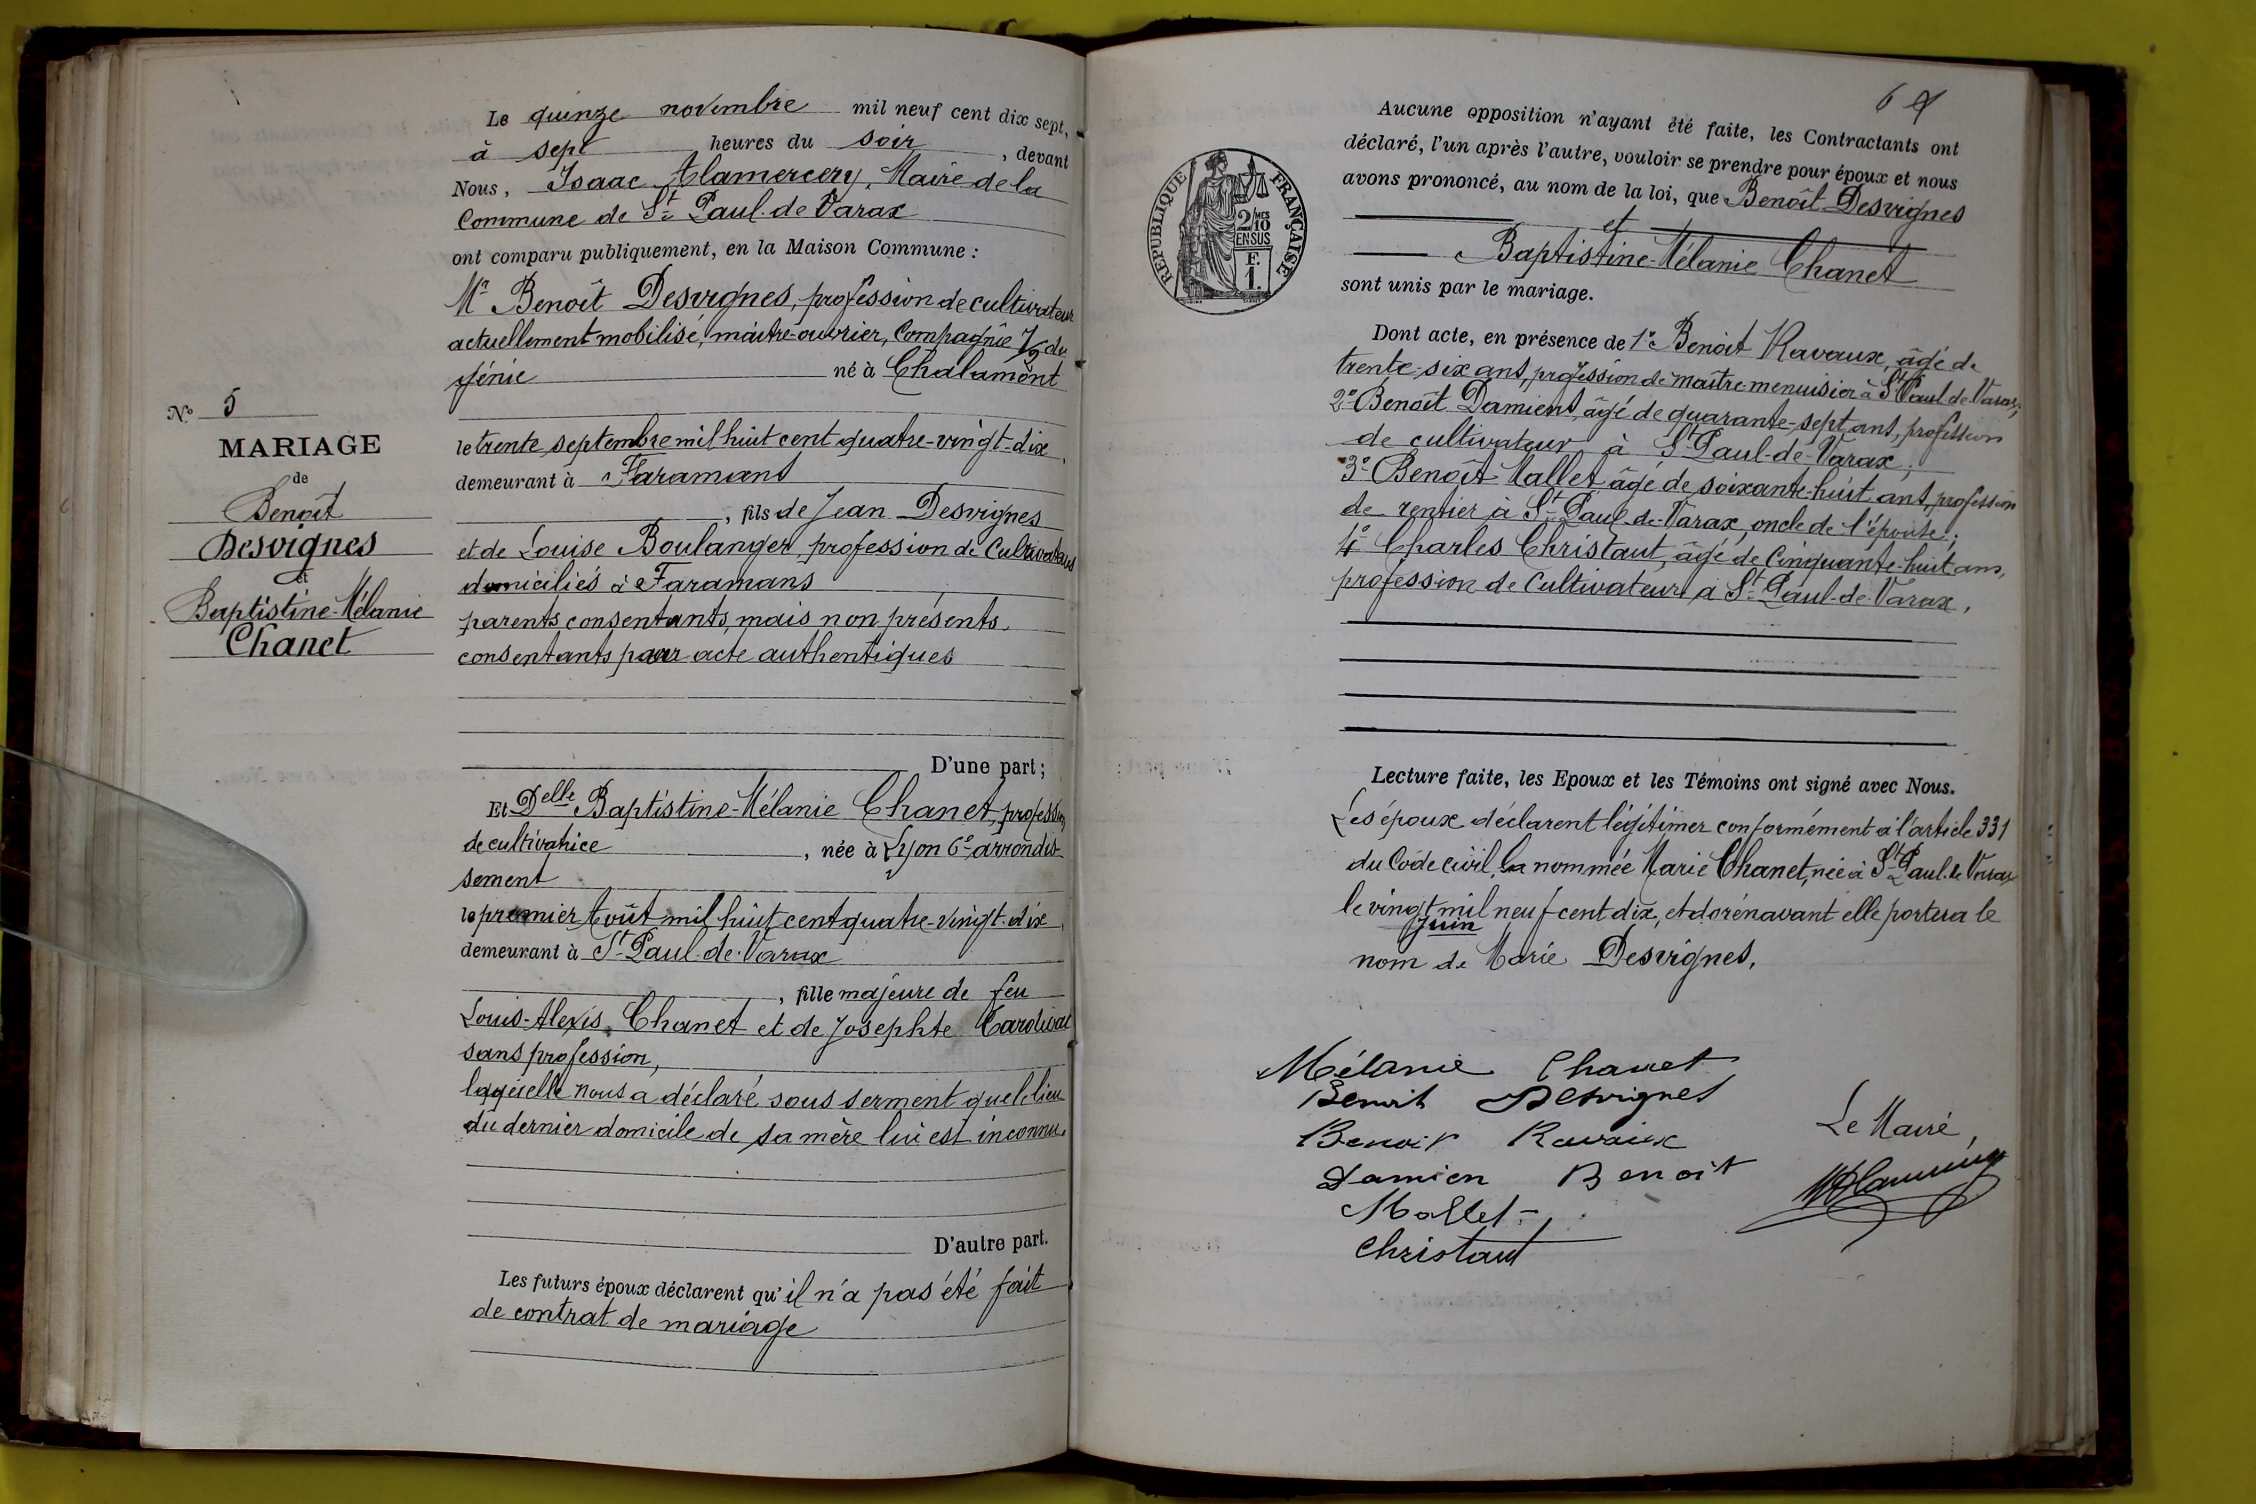 Le quinze novembre mil neuf cent dix sept,
à sept heures du soir, devant
Nous, Isaac Alamercery, Maire de la
Commune de St Paul-de-Varax
ont comparu publiquement, en la Maison Commune :
Mr Benoît Desvignes, profession de cultivateur
actuellement mobilisé, maître-ouvrier, Compagnie du
génie né à Chalamont
le trente septembre mil huit cent quatre-vingt-dix,
demeurant à Faramans
, fils de Jean Desvignes
et de Louise Boulanger, profession de Cultivateurs
domiciliés à Faramans
parents consentants, mais non présents,
consentants par acte authentiques
D'une part ;
Et Delle Baptistine-Mélanie Chanet, profession
de cultivatrice, née à Lyon 6e arrondis-
sement
le premier Août mil huit cent quatre-vingt-dix,
demeurant à St Paul-de-Varax
, fille majeure de feu
Louis-Alexis Chanet et de Josephte
sans profession,
laquelle nous a déclaré sous serment que le lieu
du dernier domicile de sa mère lui est inconnu.
D'autre part.
Les futurs époux déclarent qu'il n'a pas été fait
de contrat de mariage
No 5
MARIAGE
de
Benoît
Desvignes
et
Baptistine-Mélanie
Chanet
6
Aucune opposition n'ayant été faite, les Contractants ont
déclaré, l'un après l'autre, vouloir se prendre pour époux et nous
avons prononcé, au nom de la loi, que Benoît Desvignes
et
Baptistine-Mélanie Chanet
sont unis par le mariage.
RÉPUBLIQUE FRANÇAISE
2/10 MES
EN SUS
F.
1.
Dont acte, en présence de 1° Benoît Ravaux, âgé de
trente-six ans, profession de maître-menuisier à St Paul de Varax;
2° Benoît Damient, âgé de quarante-sept ans, profession
de cultivateur à St Paul-de-Varax,
3° Benoît Mallet âgé de soixante-huit ans, profession
de rentier à St Paul-de-Varax, oncle de l'épouse;
4° Charles Christaut, âgé de Cinquante-huit ans,
profession de Cultivateur à St Paul-de-Varax.
Lecture faite, les Epoux et les Témoins ont signé avec Nous.
Les époux déclarent légitimer conformément à l'article 331
du Code civil, la nommée Marie Chanet, née à St Paul-de-Varax
le vingt mil neuf cent dix, et dorénavant elle portera le
Juin
nom de Marie Desvignes.
Mélanie Chanet
Benoit Desvignes
Benoit Ravaux
Damien Benoit
Mallet
Christaut
Le Maire,